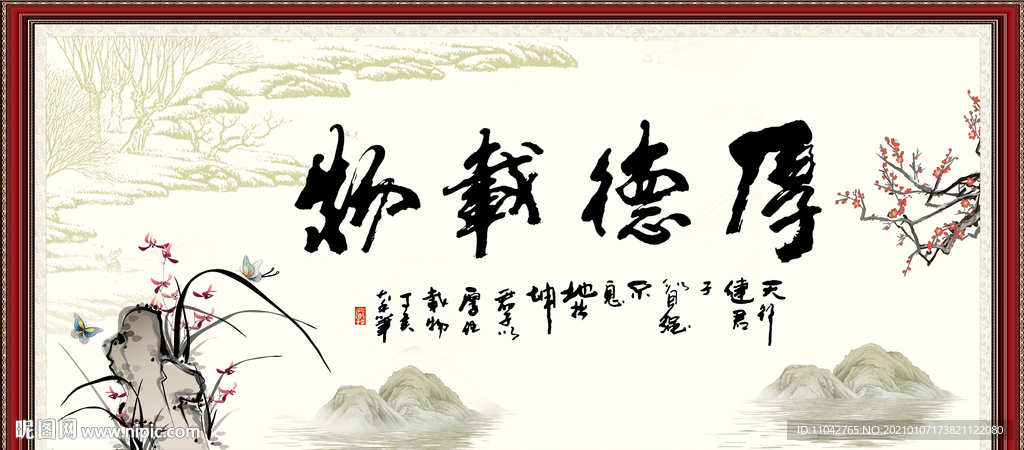 厚德載物
天行
健君
子
以自强
不
息
地势
坤
君子以
厚德
載物
丁亥
昵图网 www.nipic.com
ID:11042765 NO:20210107173821122080